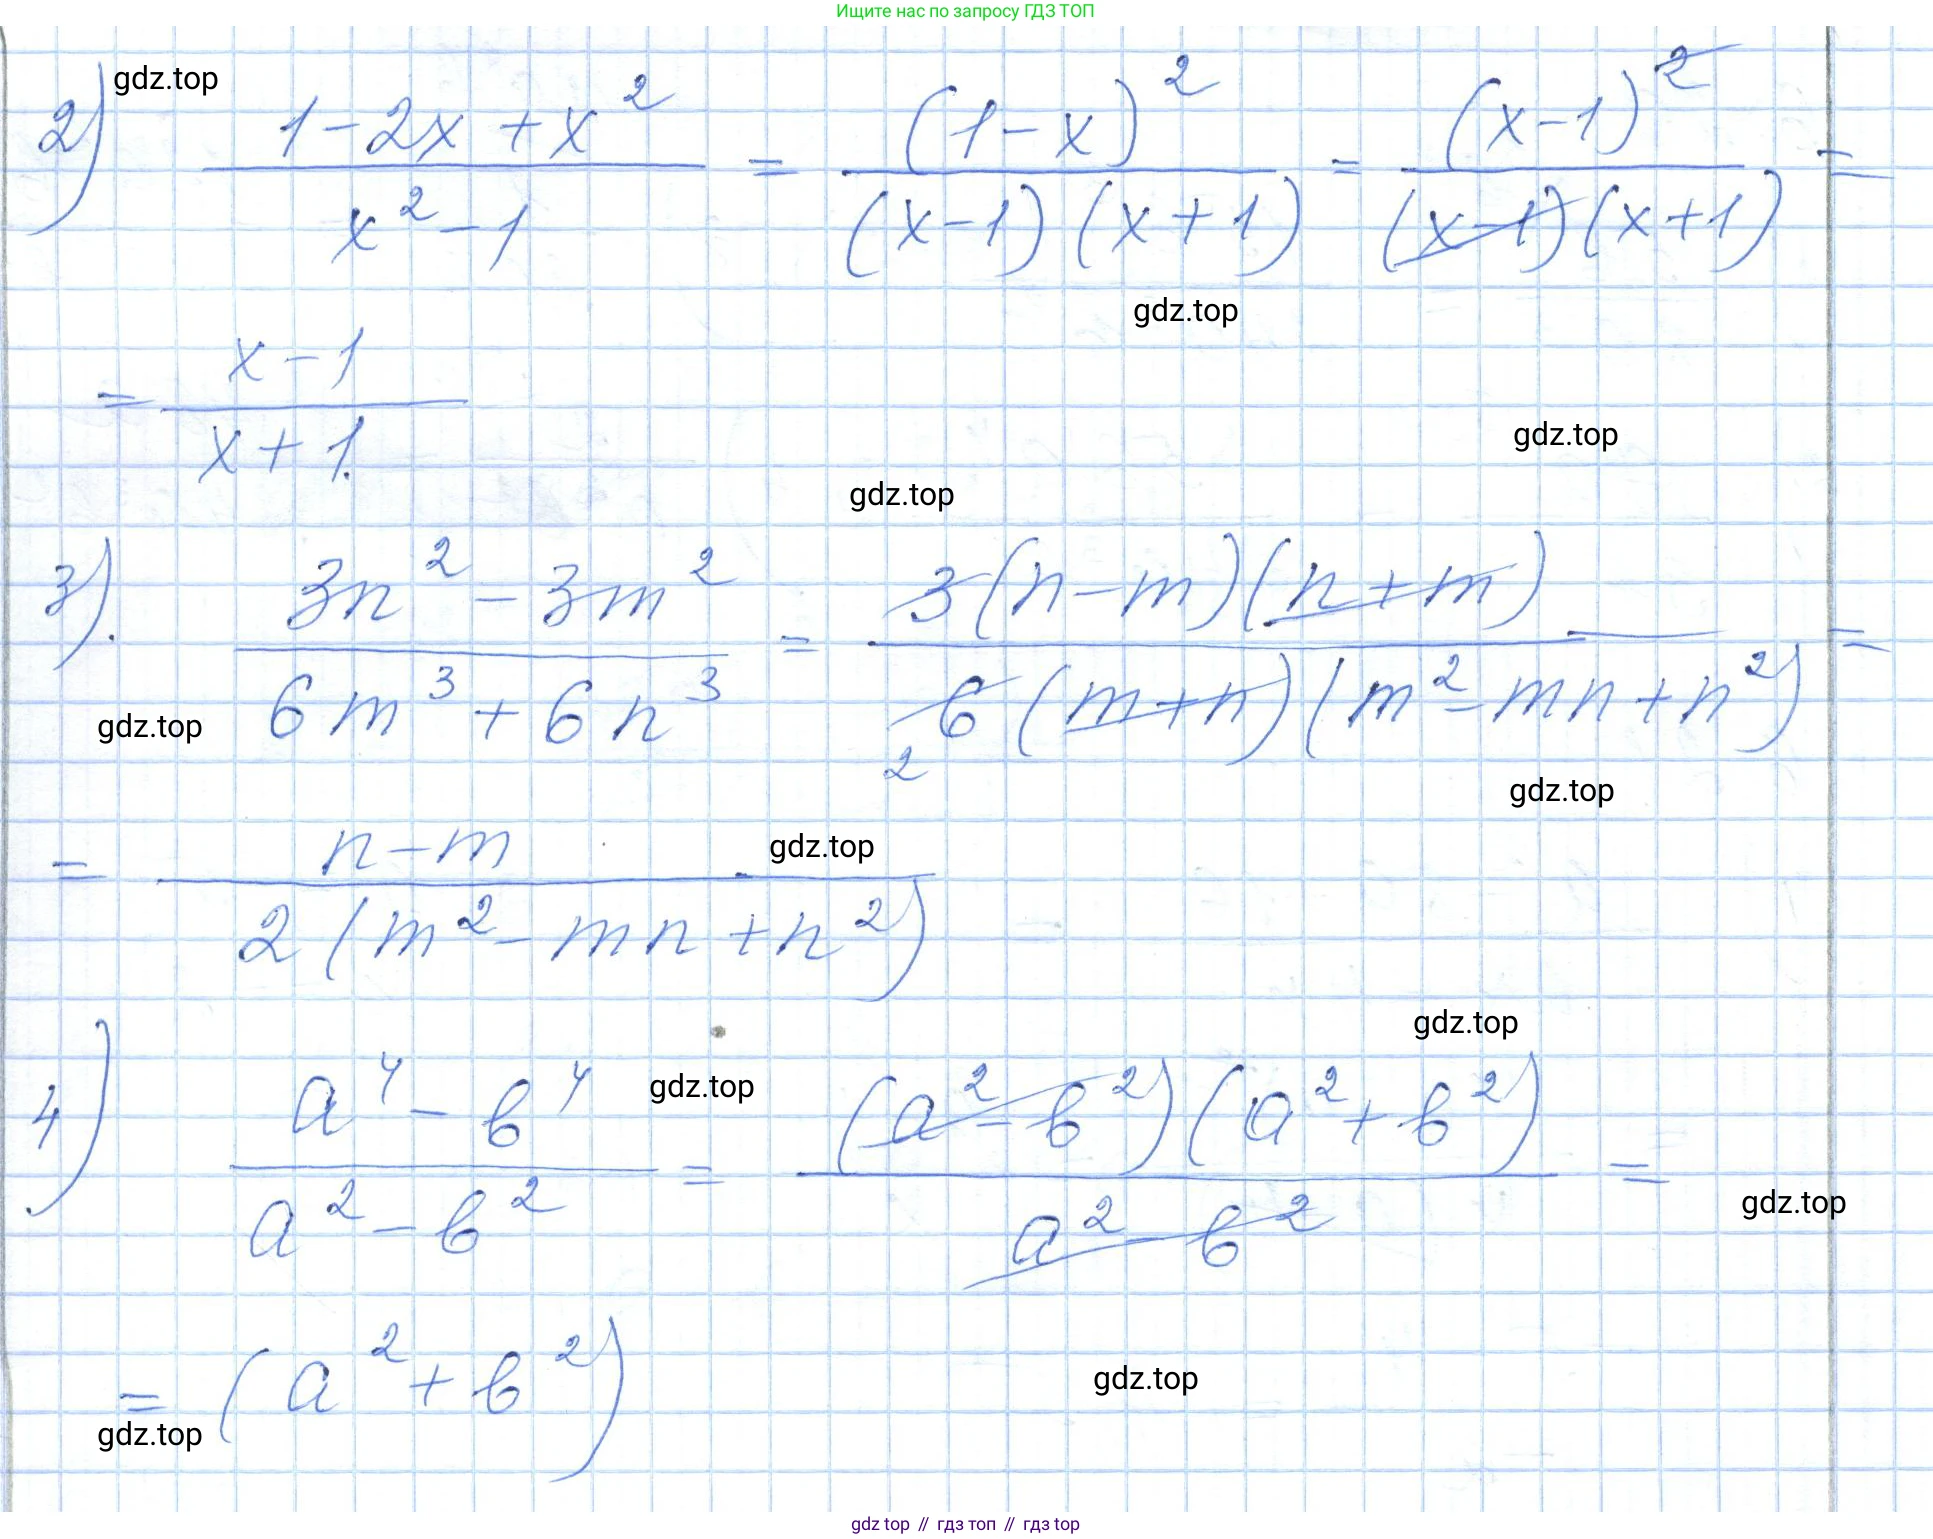 Ищите нас по запросу ГДЗ ТОП
gdz.top
2) (1 - 2x + x²)/(x² - 1) = (1 - x)²/((x - 1)(x + 1)) = (x - 1)²/((x - 1)(x + 1)) =
gdz.top
= (x - 1)/(x + 1).
gdz.top
gdz.top
3). (3n² - 3m²)/(6m³ + 6n³) = 3(n - m)(n + m)/(6(m + n)(m² - mn + n²)) =
2
gdz.top
gdz.top
gdz.top
= (n - m)/(2(m² - mn + n²))
gdz.top
4) (a⁴ - в⁴)/(a² - в²) = (a² - в²)(a² + в²)/(a² - в²) =
gdz.top
gdz.top
= (a² + в²)
gdz.top
gdz.top
gdz top // гдз топ // гдз top